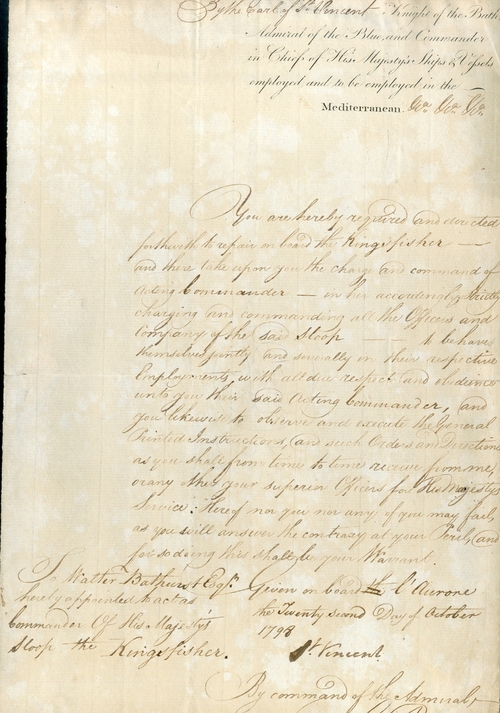 By the Earl of St. Vincent Knight of the Bath
Admiral of the Blue, and Commander
in Chief of His Majesty's Ships & Vessels
employed and to be employed in the
Mediterranean. &c. &c. &c.
You are hereby required and directed
forthwith to repair on board the Kingsfisher
and there take upon you the charge and command of
Acting Commander — in her accordingly, strictly
charging and commanding all the Officers and
Company of the said Sloop — to behave
themselves jointly and severally in their respective
Employments, with all due respect and obedience
unto you their said Acting Commander, and
you likewise to observe and execute the General
Printed Instructions, and such Orders and Directions
as you shall from time to time receive from me,
or any other your superior Officers for His Majesty's
Service: Hereof nor you nor any of you may fail,
as you will answer the contrary at your Peril, and
for so doing this shall be your Warrant.
To Walter Bathurst Esqr.
hereby appointed to act as
Commander Of His Majesty's
Sloop the Kingsfisher.
Given on board the L'Aurore
the Twenty second Day of October
1798
St. Vincent
By command of the Admiral